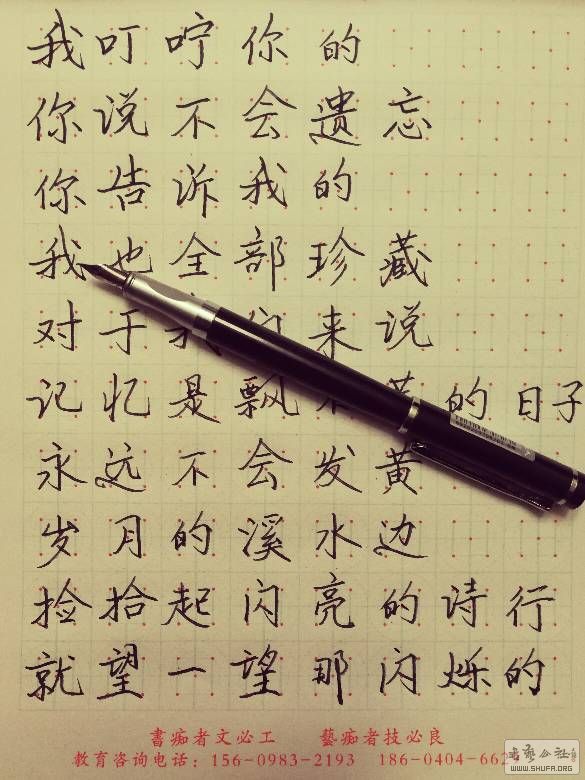 我叮咛你的
你说不会遗忘
你告诉我的
我也全部珍藏
对于我们来说
记忆是飘不落的日子
永远不会发黄
岁月的溪水边
捡拾起闪亮的诗行
就望一望那闪烁的
書痴者文必工 藝痴者技必良
教育咨询电话：156-0983-2193 186-0404-662
WWW.SHUFA.ORG